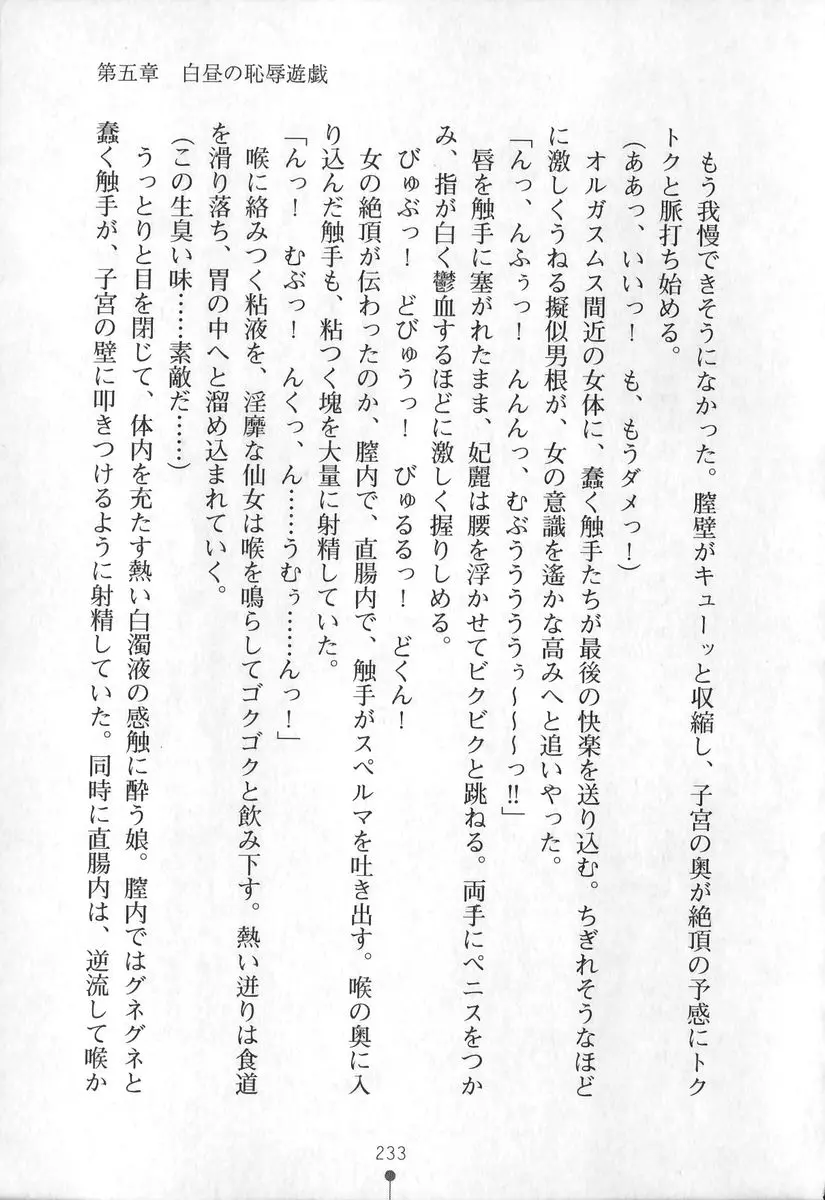 第五章　白昼の恥辱遊戯
もう我慢できそうになかった。膣壁がキューーッと収縮し、子宮の奥が絶頂の予感にトク
トクと脈打ち始める。
（ああっ、いいっ！　も、もうダメっ！）
オルガスムス間近の女体に、蠢く触手たちが最後の快楽を送り込む。ちぎれそうなほど
に激しくうねる擬似男根が、女の意識を遙かな高みへと追いやった。
「んっ、んふぅっ！　んんんっ、むぶうううううぅ～～～っ!!」
唇を触手に塞がれたまま、妃麗は腰を浮かせてビクビクと跳ねる。両手にペニスをつか
み、指が白く鬱血するほどに激しく握りしめる。
びゅぶっ！　どびゅうっ！　びゅるるっ！　どくん！
女の絶頂が伝わったのか、膣内で、直腸内で、触手がスペルマを吐き出す。喉の奥に入
り込んだ触手も、粘つく塊を大量に射精していた。
「んっ！　むぶっ！　んくっ、ん……うむぅ……んっ！」
喉に絡みつく粘液を、淫靡な仙女は喉を鳴らしてゴクゴクと飲み下す。熱い迸りは食道
を滑り落ち、胃の中へと溜め込まれていく。
（この生臭い味……素敵だ……）
うっとりと目を閉じて、体内を充たす熱い白濁液の感触に酔う娘。膣内ではグネグネと
蠢く触手が、子宮の壁に叩きつけるように射精していた。同時に直腸内は、逆流して喉か
233